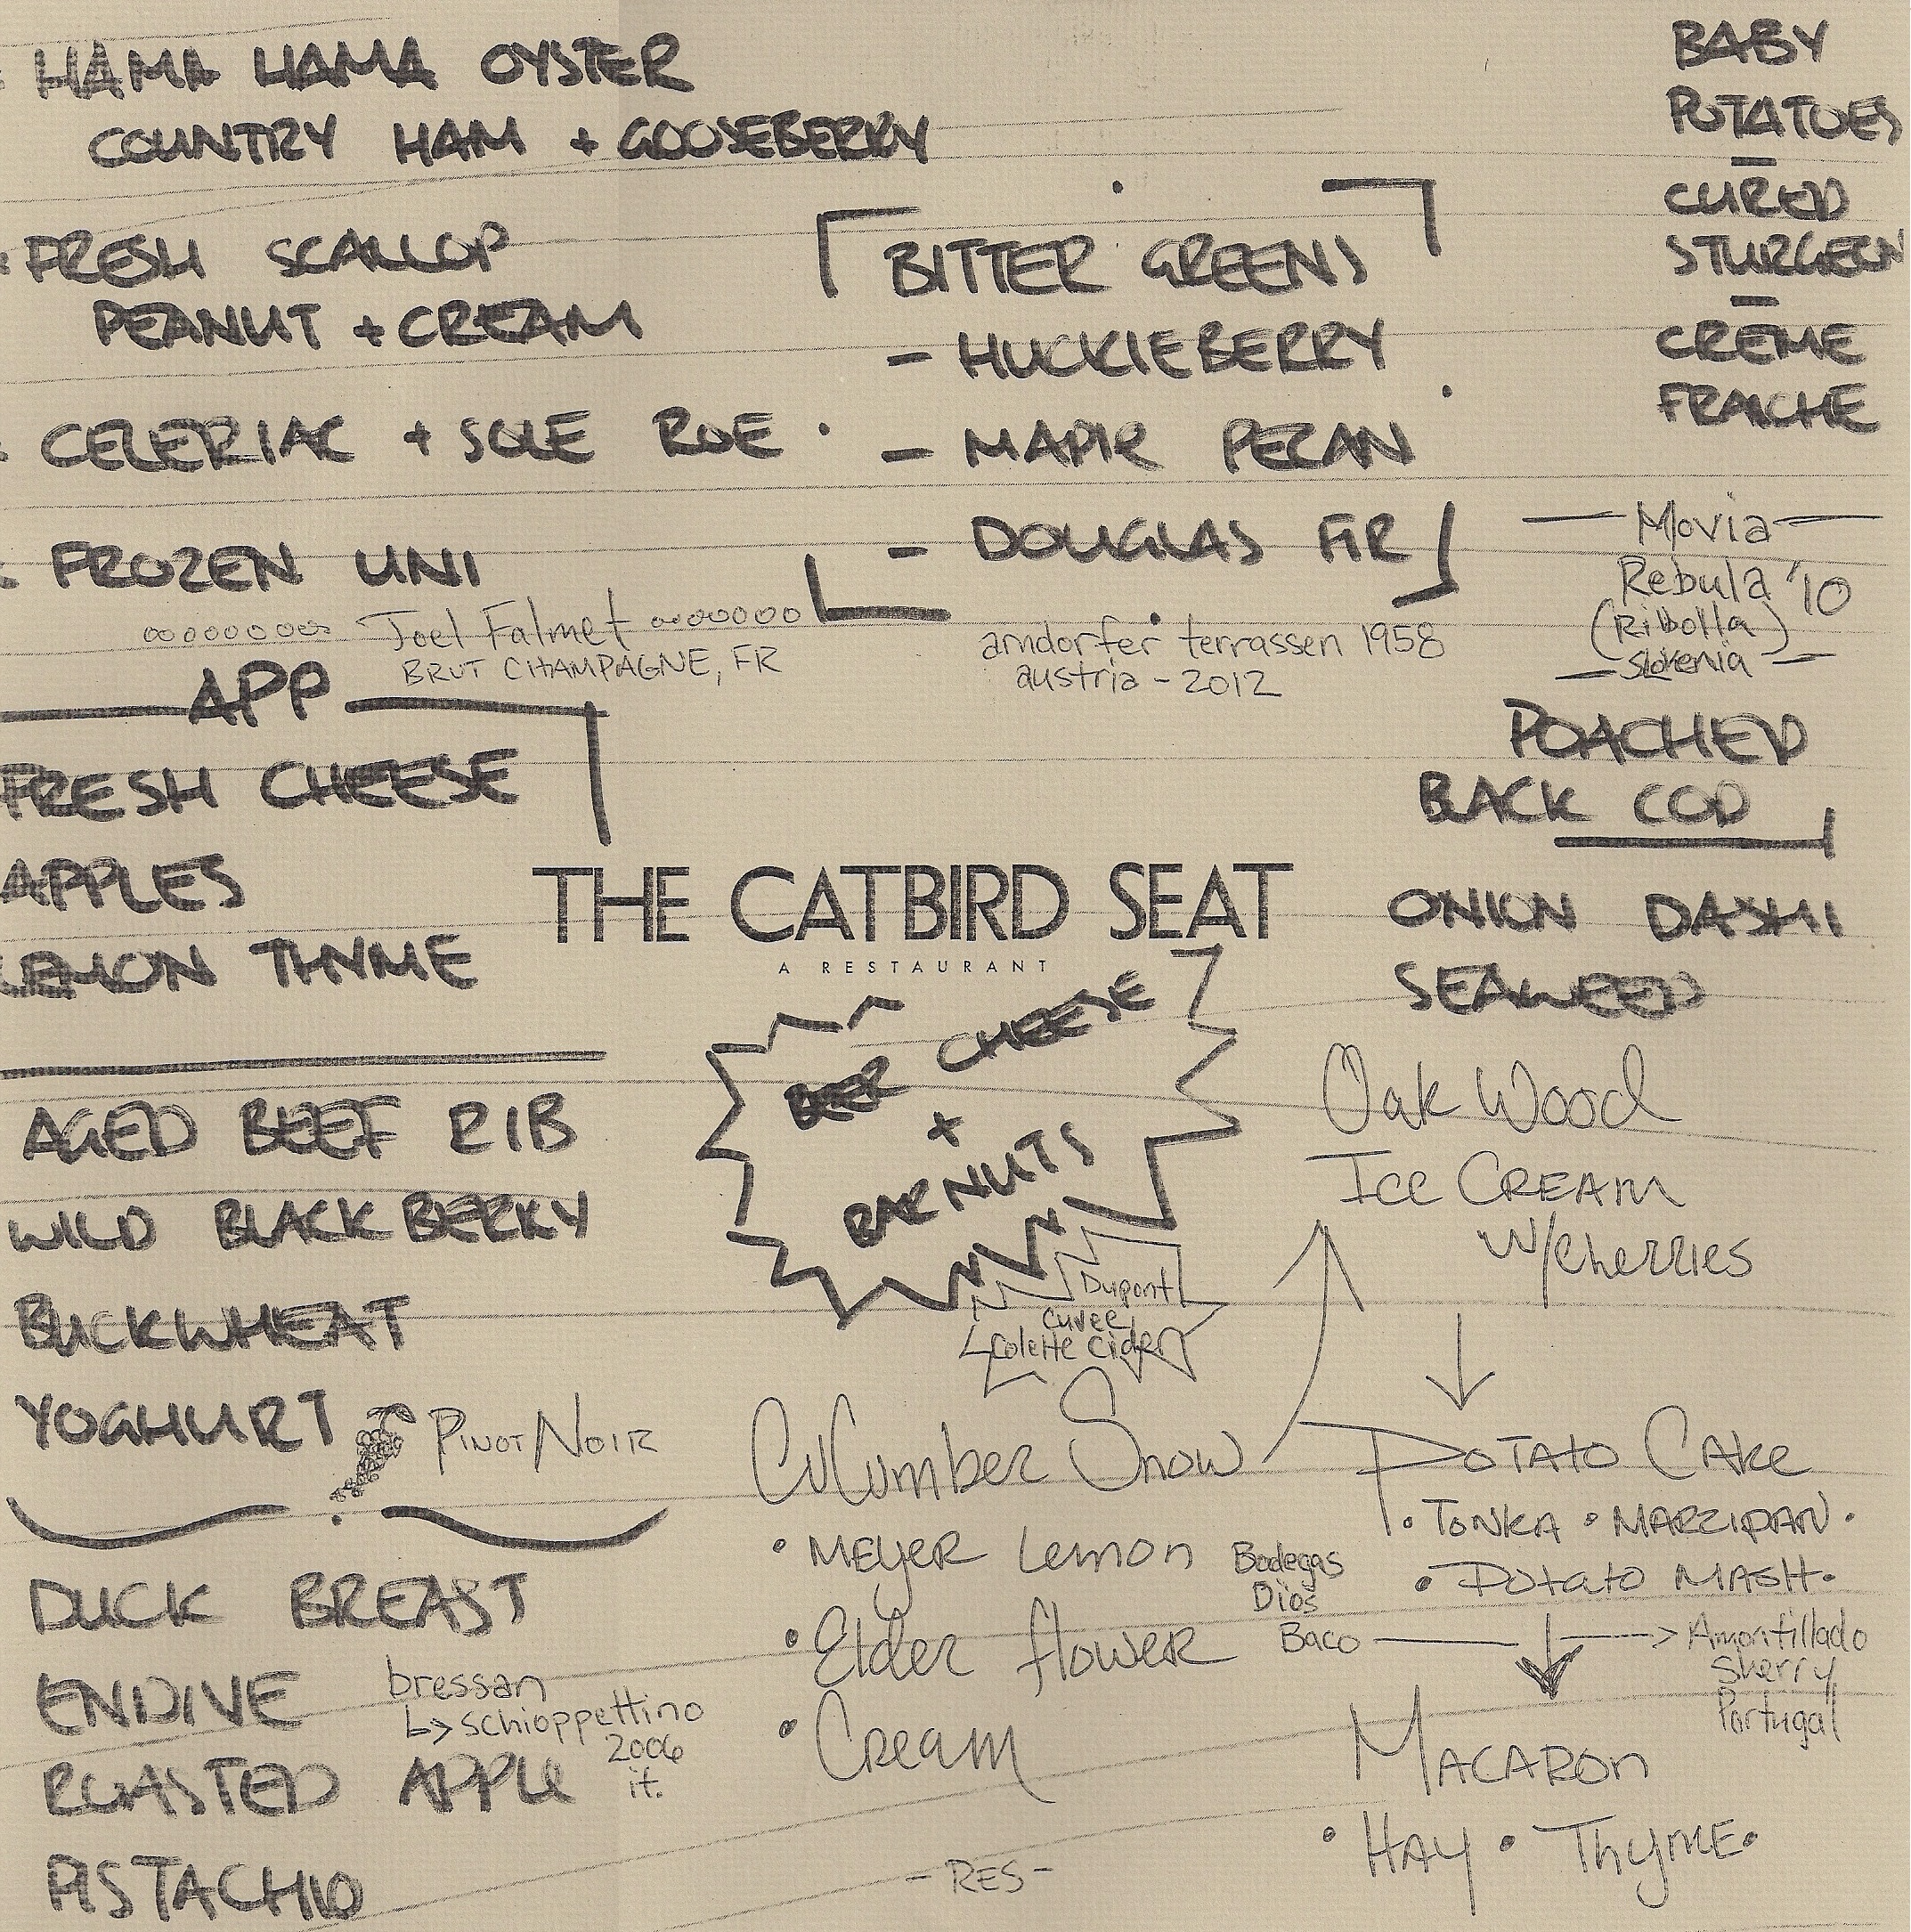 HAMA HAMA OYSTER
COUNTRY HAM + GOOSEBERRY
FRESH SCALLOP
PEANUT + CREAM
CELERIAC + SOLE ROE
FROZEN UNI
Joel Falmet
BRUT CHAMPAGNE, FR
BITTER GREENS
- HUCKLEBERRY
- MAPLE PECAN
- DOUGLAS FIR
arndorfer terrassen 1958
austria - 2012
BABY
POTATOES
-
CURED
STURGEON
-
CRÈME
FRAICHE
Movia
Rebula '10
(Ribolla)
Slovenia
APP
FRESH CHEESE
APPLES
LEMON THYME
POACHED
BACK COD
ONION DASHI
SEAWEED
THE CATBIRD SEAT
A RESTAURANT
BEER CHEESE
+
BAR NUTS
Dupont
Cuvee
Colette Cider
AGED BEEF RIB
WILD BLACKBERRY
BUCKWHEAT
YOGHURT
PINOT NOIR
DUCK BREAST
ENDIVE
ROASTED APPLE
PISTACHIO
bressan
↳ schioppettino
2006
it.
Cucumber Snow
• Meyer Lemon
• Elder flower
• Cream
Oak Wood
Ice Cream
w/cherries
Potato Cake
• Tonka • Marzipan •
• Potato Mash •
Bodegas
Dios
Baco
Amontillado
Sherry
Portugal
Macaron
• Hay • Thyme •
- RES -